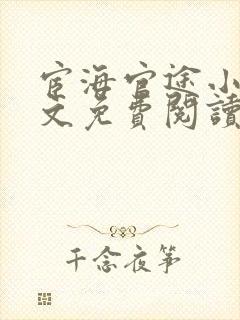 宦海官途小
文免費閱讀
千念夜箏